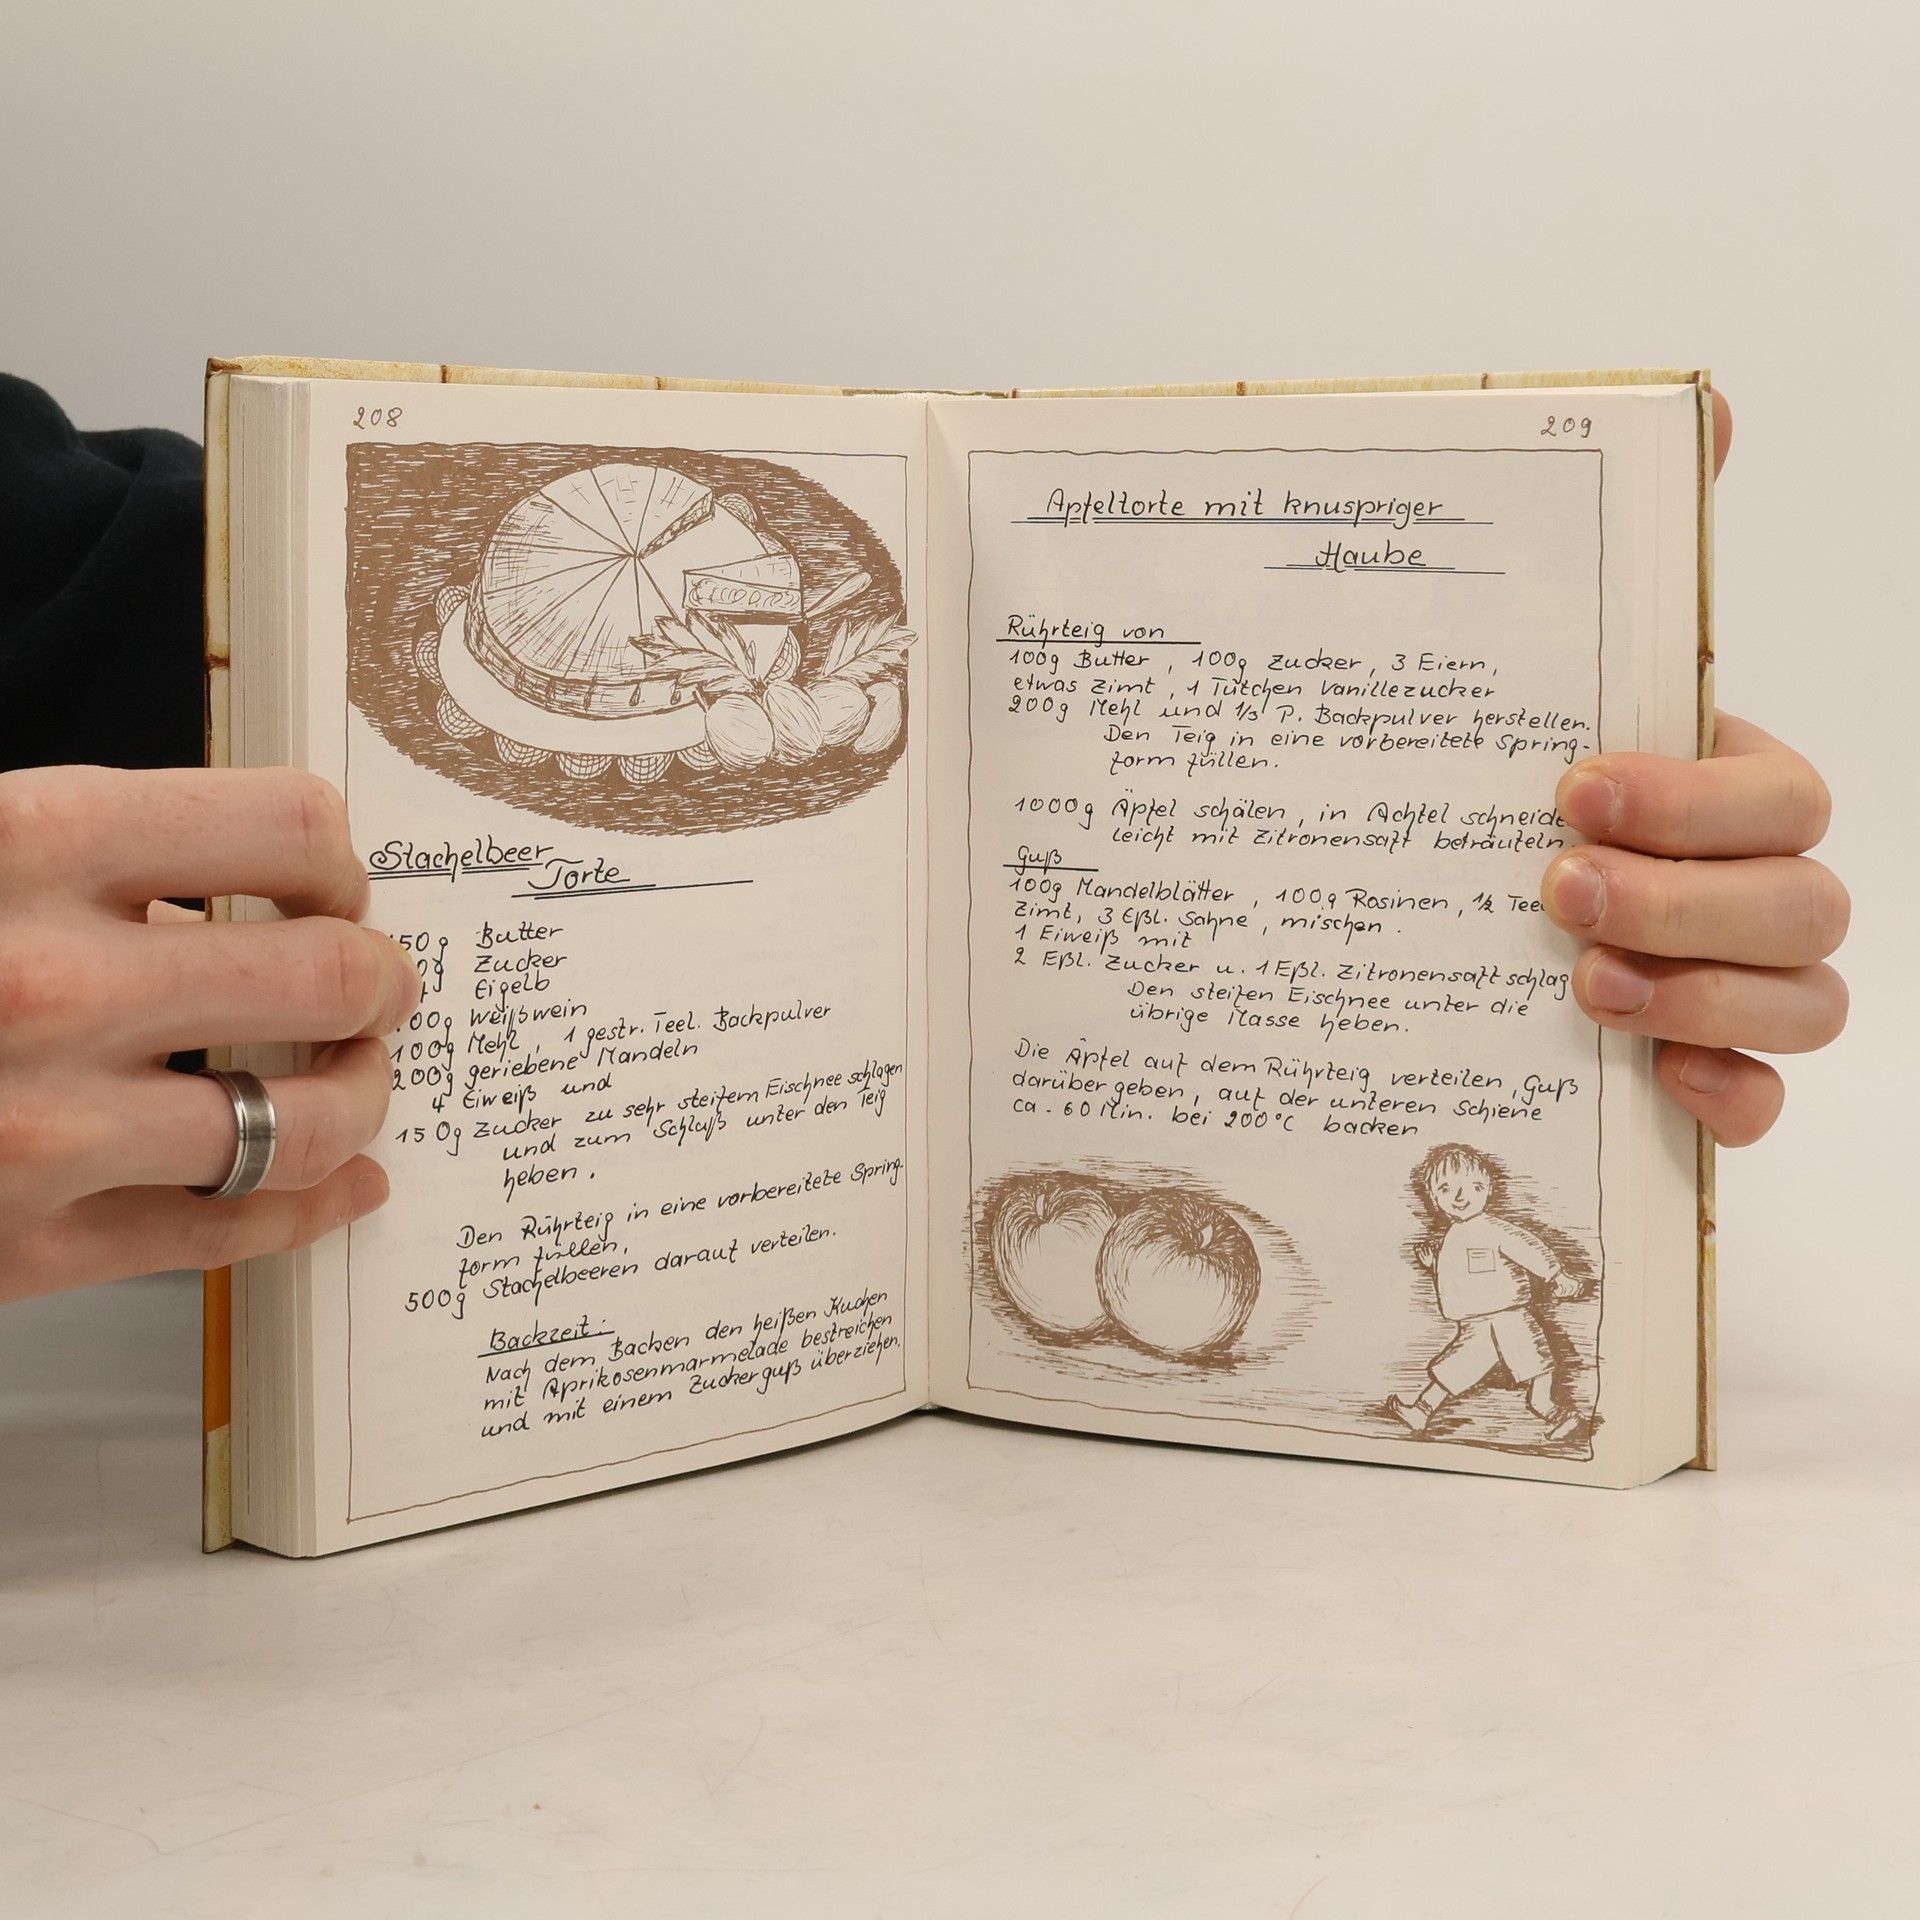 208
Stachelbeer
Torte
50g Butter
0g Zucker
Eigelb
00g Weißwein
100g Mehl, 1 gestr. Teel. Backpulver
200g geriebene Mandeln
4 Eiweiß und
150g Zucker zu sehr steifem Eischnee schlagen
und zum Schluß unter den Teig
heben.
Den Rührteig in eine vorbereitete Spring-
form füllen,
500g Stachelbeeren darauf verteilen.
Backzeit:
Nach dem Backen den heißen Kuchen
mit Aprikosenmarmelade bestreichen
und mit einem Zuckerguß überziehen.
209
Apfeltorte mit knuspriger
Haube
Rührteig von
100g Butter, 100g Zucker, 3 Eiern,
etwas Zimt, 1 Tütchen Vanillezucker
200g Mehl und 1/3 P. Backpulver herstellen.
Den Teig in eine vorbereitete Spring-
form füllen.
1000g Äpfel schälen, in Achtel schneide
leicht mit Zitronensaft beträufeln.
Guß
100g Mandelblätter, 100g Rosinen, 1/2 Tee
Zimt, 3 Eßl. Sahne, mischen.
1 Eiweiß mit
2 Eßl. Zucker u. 1 Eßl. Zitronensaft schlag
Den steifen Eischnee unter die
übrige Masse heben.
Die Äpfel auf dem Rührteig verteilen, Guß
darüber geben, auf der unteren Schiene
ca. 60 Min. bei 200°C backen